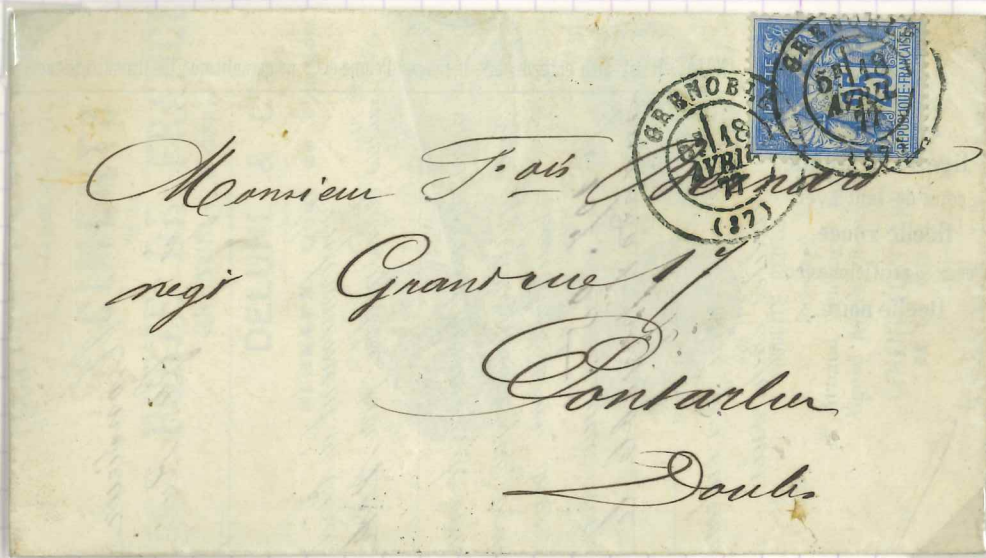 GRENOBLE
18
AVRIL
77
(37)
GRENOBLE
AVRIL
77
25
REPUBLIQUE FRANCAISE
Monsieur F.ois Bernard
negt Grand rue 17
Pontarlier
Doubs